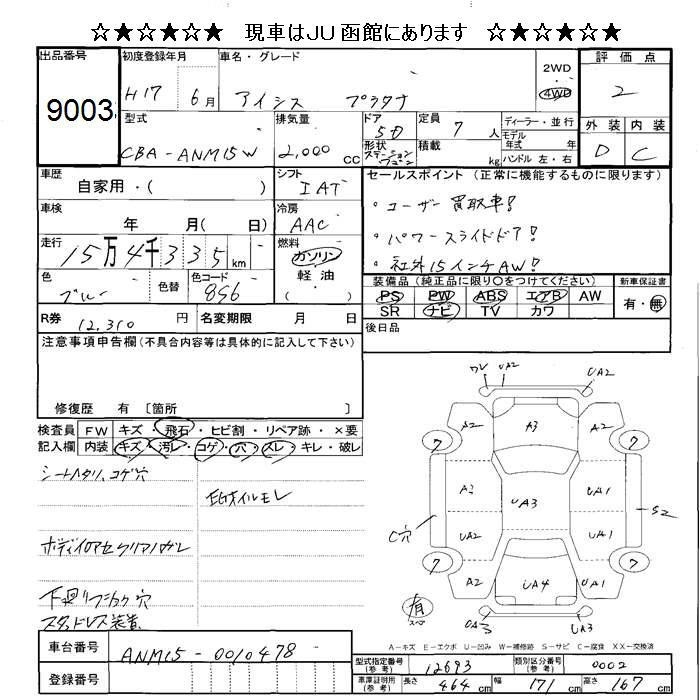 ☆★☆★☆★ 現車はJU函館にあります ☆★☆★☆★
出品番号 初度登録年月 車名・グレード 2WD 4WD 評価点
9003 H17 6月 アイシス プラタナ 2
型式 排気量 ドア 5D 定員 7人 ディーラー・並行 外装 内装
CBA-ANM15W 2,000cc 形状 ステーションワゴン 積載 kg モデル年式 年式 ハンドル 左・右 D C
車歴 自家用・( ) シフト IAT セールスポイント (正常に機能するものに限ります)
車検 年 月( 日) 冷房 AAC ・ユーザー買取車!
走行 15万4千335km 燃料 ガソリン 軽油 ( ) ・パワースライドドア!
・社外15インチAW!
色 ブルー 色替 色コード 8S6 装備品 (純正品に限り○をつけてください) 新車保証書
PS PW ABS エアB AW 有・無
SR ナビ TV カワ
R券 12,310円 名変期限 月 日 後日品
注意事項申告欄(不具合内容等は具体的に記入して下さい)
修復歴 有 〔箇所 〕
検査員 FW キズ・飛石・ヒビ割・リペア跡・×要
記入欄 内装 キズ・汚レ・コゲ・穴・スレ・キレ・破レ
シートヘタリ、コゲ穴
EGオイルモレ
ボディ色アセクリアハガレ
下廻リフショク穴
スタッドレス装着
UA2 UA2
A2 A3 A2
7 7
A2 UA3 UA1
C穴 S2
UA2 UA1
7 7
A2 UA4 UA1
有 スペア UA3
A-キズ E-エクボ U-凹み W-補修跡 S-サビ C-腐食 XX-交換済
車台番号 ANM15-0010478
登録番号
型式指定番号(参考) 12693 類別区分番号(参考) 0002
車庫証明用(参考) 長さ 464cm 幅 171cm 高さ 167cm